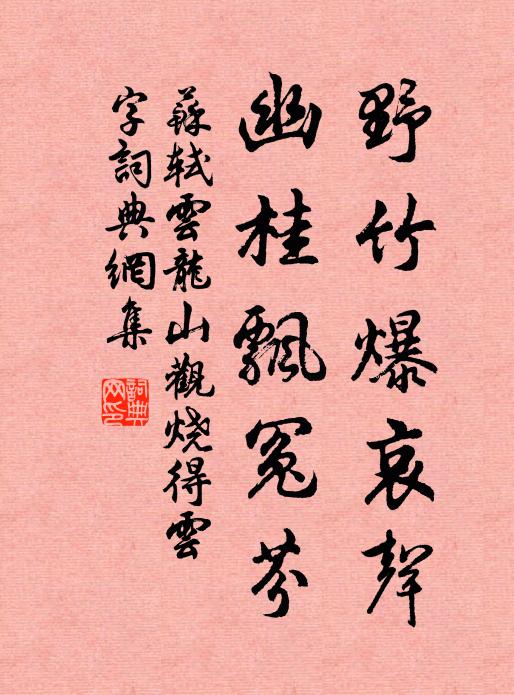 野竹爆哀聲
幽桂飄冤芬
蘇軾雲龍山觀燒得雲
字詞典網集
詞典网印